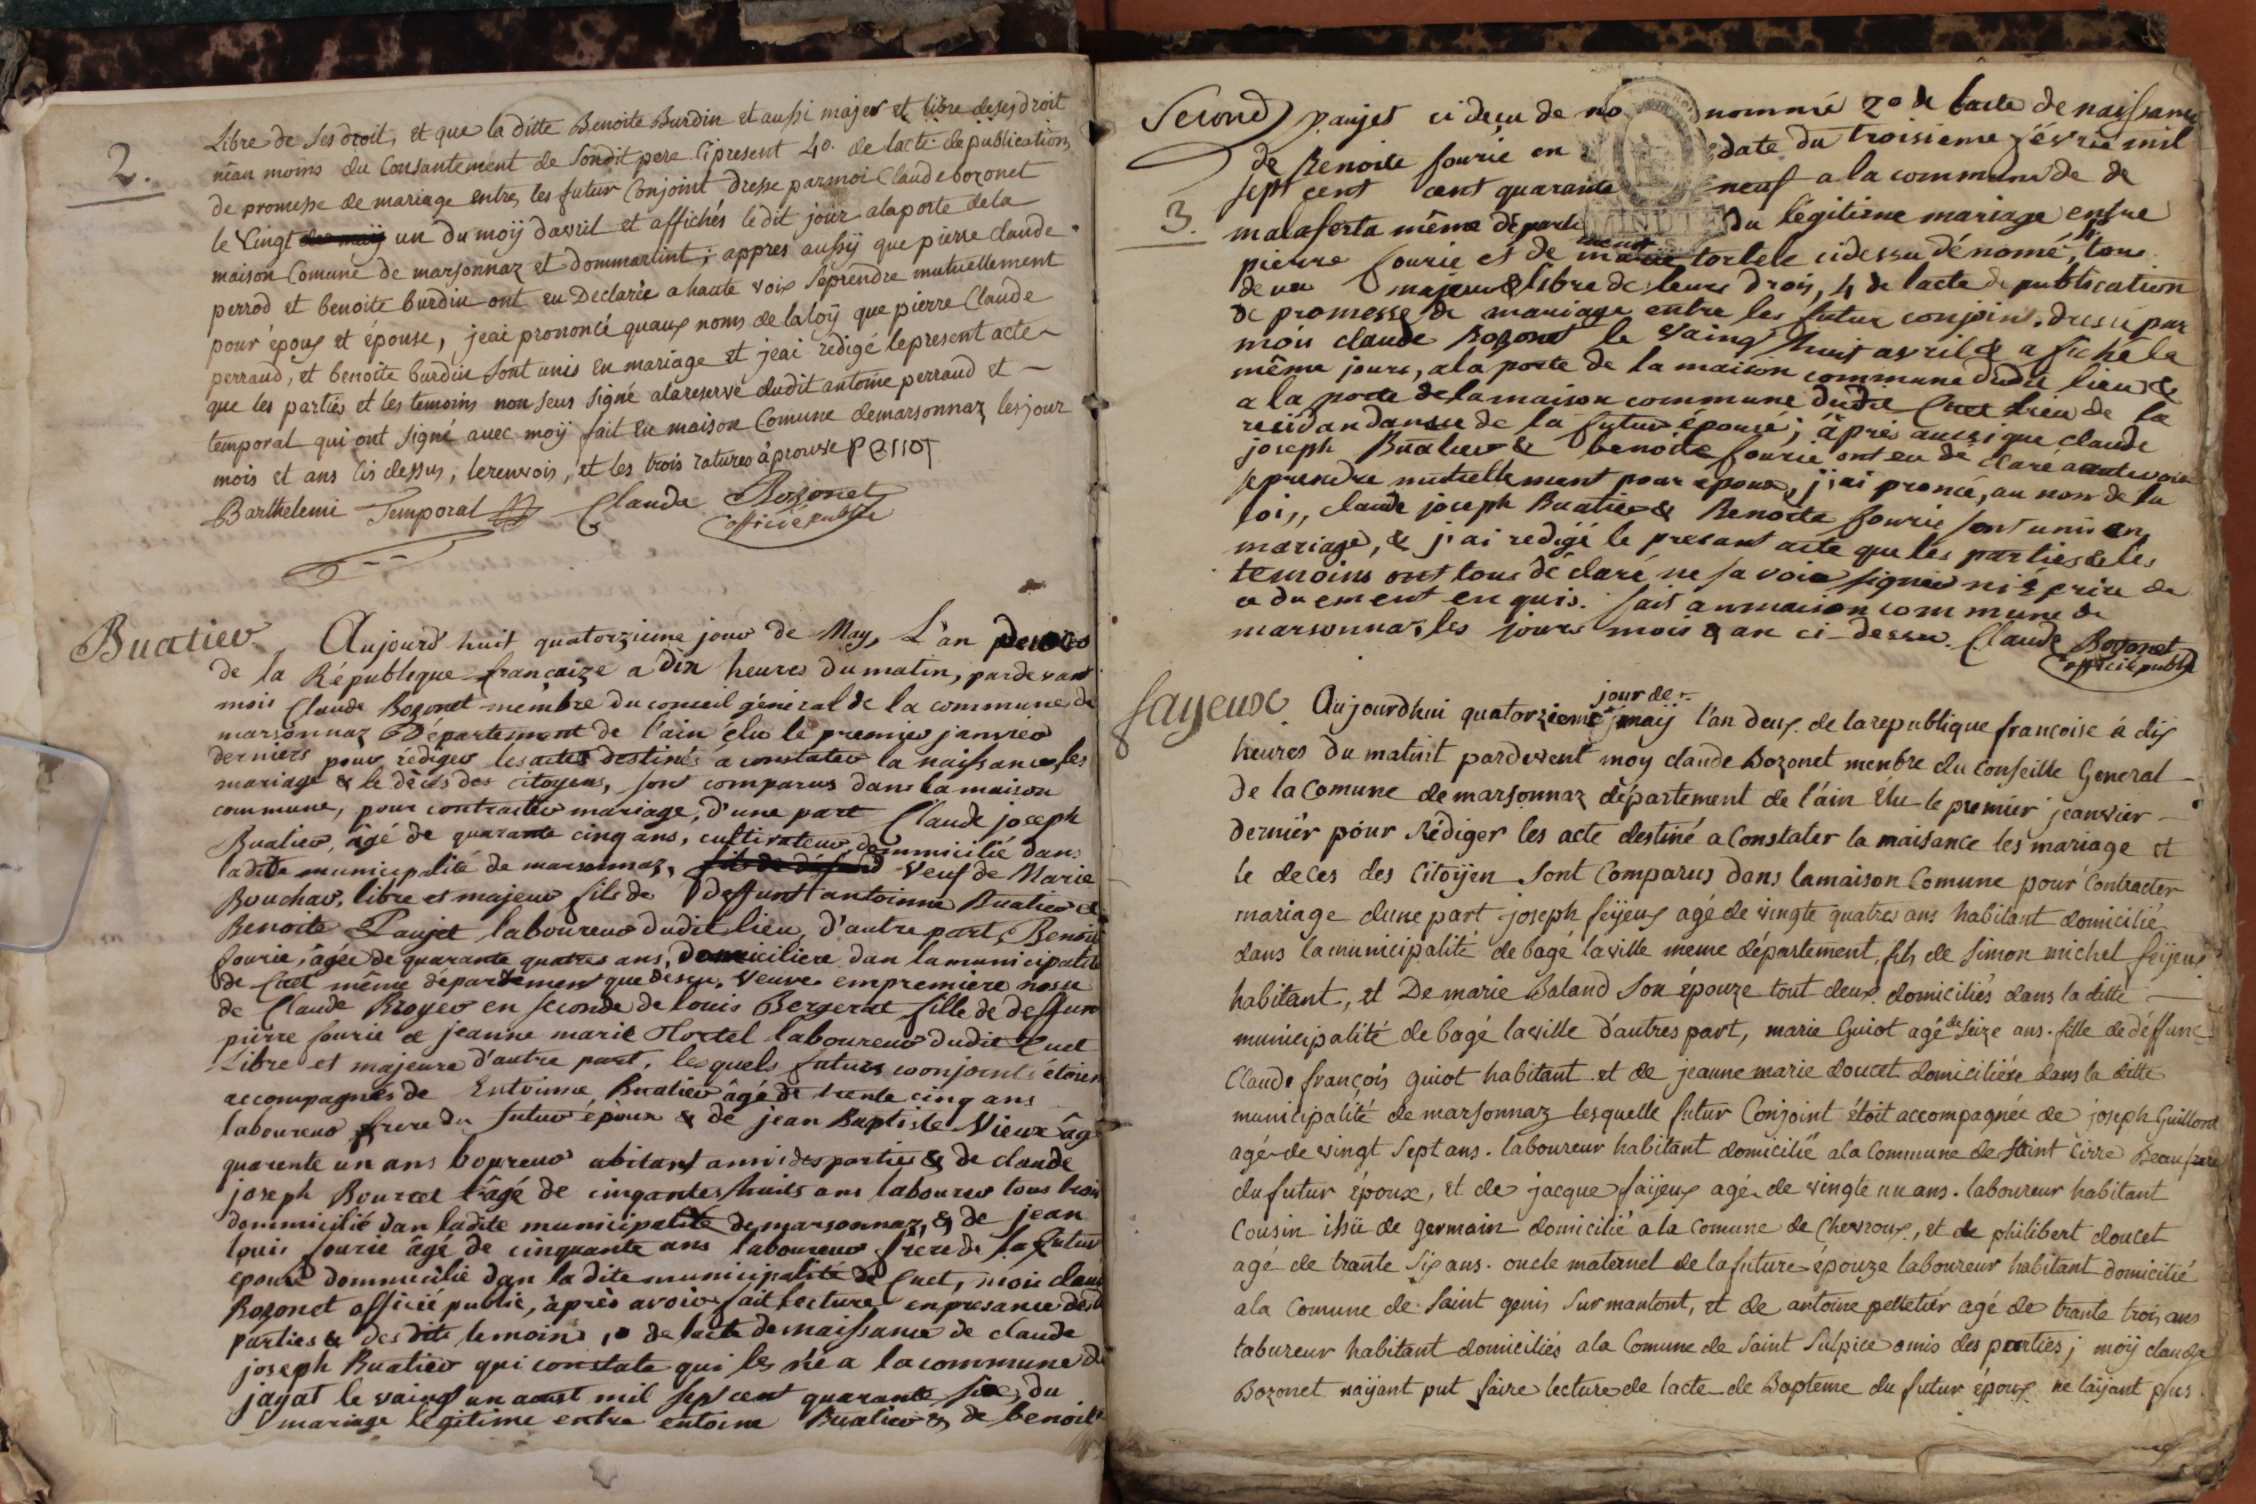 2.
Libre de ses droit, et que la ditte Benoite Burdin et aussi majer et libre de ses droit
nēan moins du Consantement de Sondit pere Ci present 4o. de lacte de publication
de promesse de mariage entre les futur Conjoint Dresse par moi Claude bozonet
le Vingt un du moÿ davril et affichés le dit jour ala porte dela
maison Comune de marsonnaz et dommartint; appres aussÿ que pierre claude
perrod et benoite burdin ont eu Declarée a haute voix Seprendre mutuellement
pour époux et épouse, jeai prononcé quaux noms de la loÿ que pierre Claude
perraud, et benoite burdin Sont unis en mariage et jeai redigé lepresent acte
que les parties et les temoins non Seus Signé alareserve dudit antoine perraud et
temporal qui ont Signé avec moÿ fait en maison Comune demarsonnaz les jour
mois et ans Cis dessus, lerenvois, et les trois ratures àprouve perrot
Barthelemi Temporal Claude Bozonet
officié public
Buatier Aujourd'huit quatorzieme jour de May, L'an deux
de la République françaize a dix heures du matin, pardevant
moi Claude Bozonet membre du conseil géneral de la commune de
marsonnaz Département de l'ain élu le premier janvier
derniers pour rédiger les actes destinés a constater la naissance, les
mariage & le décès des citoyens, sont comparus dans la maison
commune, pour contracter mariage, d'une part Claude joseph
Buatier, âgé de quarante cinq ans, cultivateur, dommicilié dans
ladite municipalité de marsonnaz, fils de défund Veuf de Marie
Bouchar, libre et majeur fils de Deffunt antoinne Buatier &
Benoite Paujet laboureur dudit lieu, d'autre part, Benoite
fourie, âgée de quarante quatres ans, Domiciliere dan la municipalité
de Cuet même département que desu, Veuve en premiere nosse
de Claude Broyer en seconde de louis Bergerat fille de deffun
pierre fourie & jeanne marie Tortel laboureur dudit Cuet
Libre et majeure d'autre part, lesquels futurs conjoints étoien
accompagnés de Entoinne Buatier âgé de trente cinq ans
laboureur frere du futur époux & de jean Baptiste Vieux âgé
quarente un ans boureur abitant ami des parties & de claude
joseph Bourcet âgé de cinqantes huits ans laboureur tous trois
dommicilié dan ladite municipalité de marsonnaz, & de jean
louis fourie âgé de cinquante ans laboureur frere de la futur
epouse dommicilié dan la dite municipalité de Cuet, moi claude
Bozonet officié public, après avoir fait lecture en presance desd
parties & des dits temoins, 1o de lacte de naissance de claude
joseph Buatier qui constate qui les né a la commune de
jayat le vaingt un aoust mil sept cent quarante six, du
mariage légitime entre entoine Buatier & de benoite
Second paujet ci deçu de no nommé 2o de lacte de naissance
de Benoite fourie en date du troisieme févrié mil
sept cent cent quarante neuf a la commune de de
3.
malaferta même département du légitime mariage entre
pierre fourie et de marie tortele cidessu dénomé, tous
deux majeur & libre de leurs drois, 4 de lacte de publication
de promesse de mariage entre les futur conjoins, dressé par
moi claude Bozonet le vaingt huit avril & afiché le
même jours, a la porte de la maison commune dudit lieu &
a la porte de la maison commune dudit Cuet lieu de la
residandansse de la futur épouse; âprès aussi que claude
joseph Buatier & benoite fourie ont eu de claré a aute voix
seprendre mutuellement pour époux, j'ai proncé, au nom de la
loi,, claude joseph Buatier & Benoite fourie sont unis en
mariage, & j'ai redigé le presant acte que les parties & les
temoins ont tous déclaré ne savoir signer ni écrire de
ce duement enquis. fait a nmaison commune de
marsonnaz, les jours mois & an ci-dessu. Claude Bozonet
officié public
fayeux Aujourdhui quatorzieme jour de maÿ l'an deux de la republique francoise á dix
heures du matint pardevent moy claude Bozonet menbre du Conseille General
De la Comune de marsonnaz département de l'ain Elu le premier jeanvier
dernier pour Rédiger les acte destiné a Constater la naisance les mariage et
le deces des Citoÿen Sont Comparus dans lamaison Comune pour Contracter
mariage dune part joseph feÿeux agé de vingte quatres ans habitant domicilié
dans la municipalité de bagé laville meme département, fils de Simon michel feijeux
habitant, et De marie Baland Son épouze tout deux domiciliés dans la ditte
municipalité de bagé laville d'autres part, marie Guiot agé de Seize ans. fille de déffunc
Claude françois guiot habitant et de jeanne marie doucet domiciliére dans la ditte
municipalité de marsonnaz lesquelle futur Conjoint étoit accompagnée de joseph Guillord
agé de vingt Sept ans. laboureur habitant domicilié ala Commune de Saint Cirre Beaufrere
du futur époux, et de jacque faijeux agé de vingte un ans. laboureur habitant
Cousin issü de germain domicilié a la Comune de Chevroux, et de philibert doucet
agé de trante Six ans. oncle maternel de la future épouze laboureur habitant domicilié
a la Comune de Saint genis Sur mantont, et de antoine pelletiér agé de trante trois ans
laboureur habitant domiciliés ala Comune de Saint Sulpice amis des parties; moÿ claude
Bozonet naÿant put faire lecture de lacte de Bapteme du futur époux ne laÿant pus